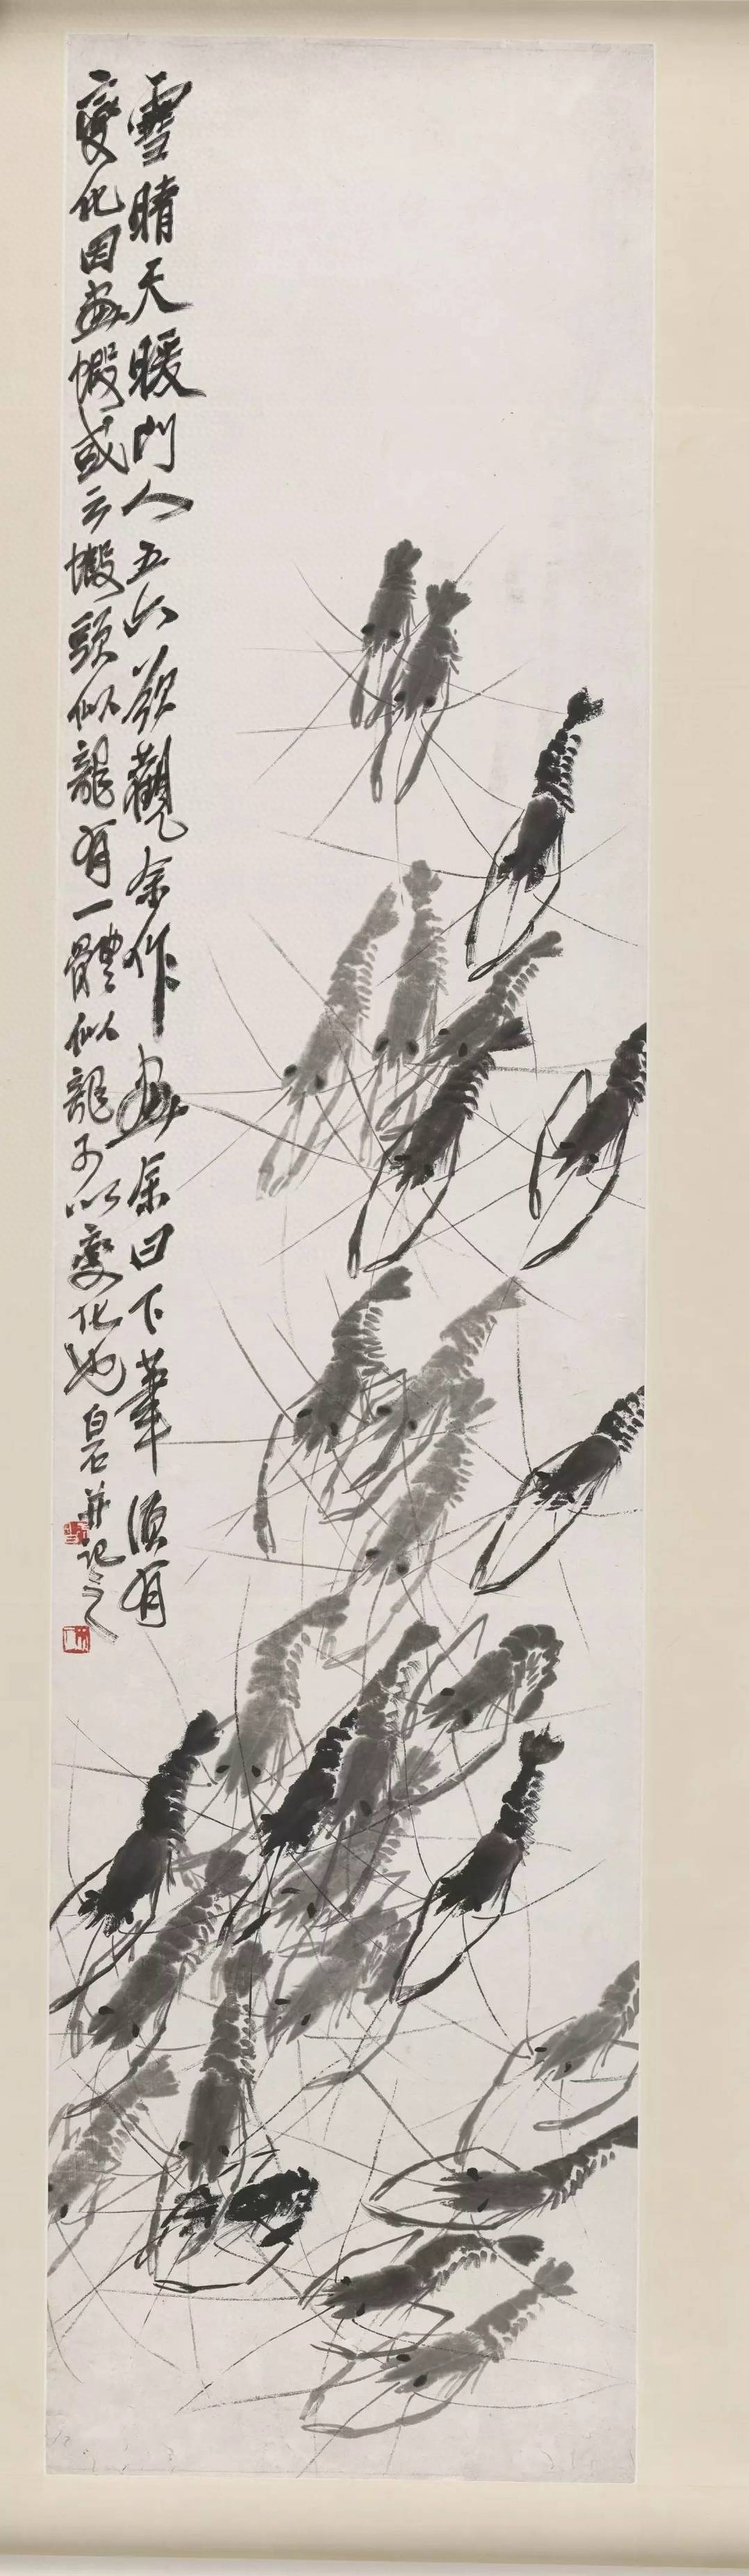 雪晴天暖門人五六欲觀余作畫余曰下筆須有
變化因畫蝦或云蝦頭似龍有一體似龍可以變化也白石並記之